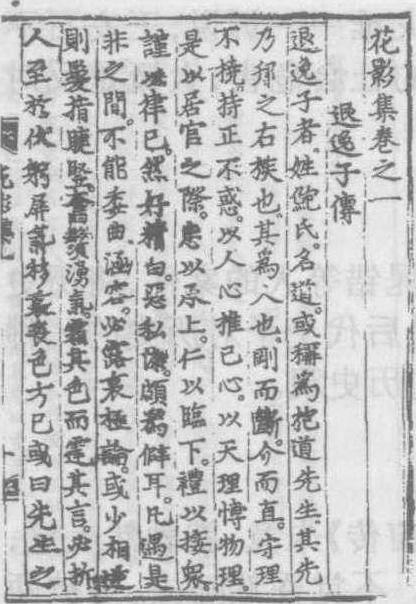 花影集卷之一
退逸子傳
退逸子者。姓鮑氏。名道。或稱爲抱道先生。其先
乃邾之右族也。其爲人也。剛而斷。介而直。守理
不撓。持正不惑。以人心推己心。以天理博物理。
是以居官之際。忠以承上。仁以臨下。禮以接衆。
謹以律己。然好精白。惡私隱。頗爲僻耳。凡遇是
非之間。不能委曲涵容。必露裏極論。或少相
則髮指睫竪。奮髯湧氣。霜其色而霆其言。必折
人至於伏躬屏氣衫表喪色方已或曰先生之